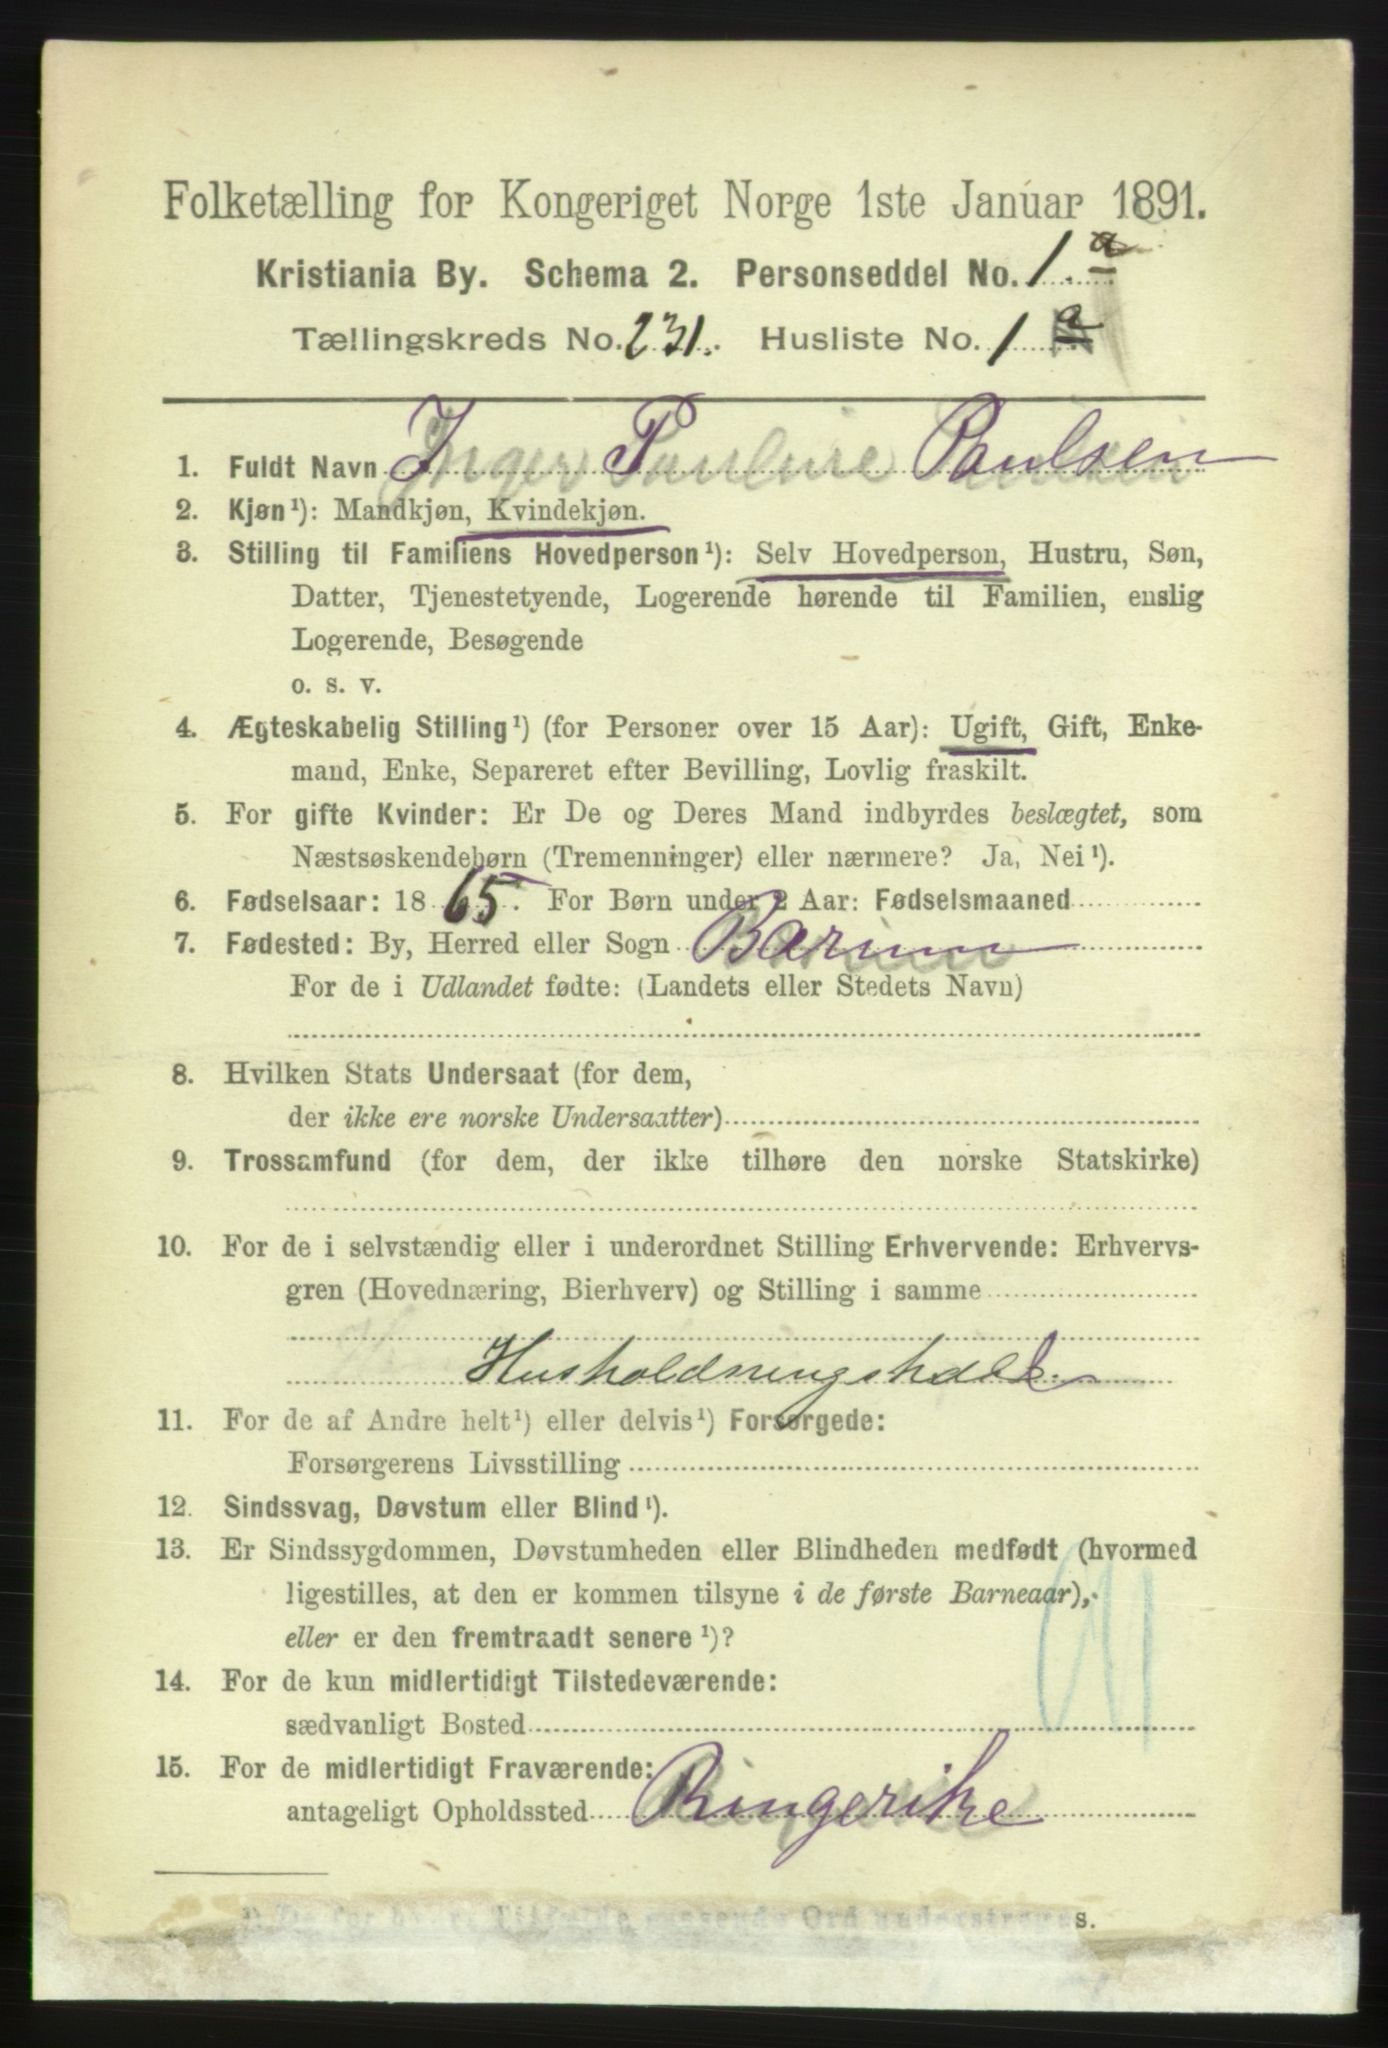 Folketælling for Kongeriget Norge 1ste Januar 1891.
Kristiania By. Schema 2. Personseddel No. 1. a
Tællingskreds No. 231. Husliste No. 1 a
1. Fuldt Navn Inger Pauline Paulsen
2. Kjøn¹): Mandkjøn, Kvindekjøn.
3. Stilling til Familiens Hovedperson¹): Selv Hovedperson, Hustru, Søn,
Datter, Tjenestetyende, Logerende hørende til Familien, enslig
Logerende, Besøgende
o. s. v.
4. Ægteskabelig Stilling¹) (for Personer over 15 Aar): Ugift, Gift, Enke-
mand, Enke, Separeret efter Bevilling, Lovlig fraskilt.
5. For gifte Kvinder: Er De og Deres Mand indbyrdes beslægtet, som
Næstsøskendebørn (Tremenninger) eller nærmere? Ja, Nei¹).
6. Fødselsaar: 1865. For Børn under 2 Aar: Fødselsmaaned
7. Fødested: By, Herred eller Sogn Bærum
For de i Udlandet fødte: (Landets eller Stedets Navn)
8. Hvilken Stats Undersaat (for dem,
der ikke ere norske Undersaatter)
9. Trossamfund (for dem, der ikke tilhøre den norske Statskirke)
10. For de i selvstændig eller i underordnet Stilling Erhvervende: Erhvervs-
gren (Hovednæring, Bierhverv) og Stilling i samme
11. For de af Andre helt¹) eller delvis¹) Forsørgede:
Forsørgerens Livsstilling
12. Sindssvag, Døvstum eller Blind¹).
13. Er Sindssygdommen, Døvstumheden eller Blindheden medfødt (hvormed
ligestilles, at den er kommen tilsyne i de første Barneaar),
eller er den fremtraadt senere¹)?
14. For de kun midlertidigt Tilstedeværende:
sædvanligt Bosted
15. For de midlertidigt Fraværende:
antageligt Opholdssted Ringerike